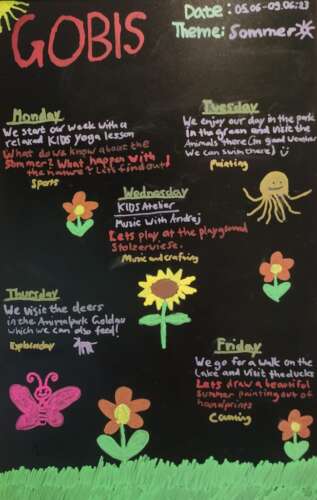 GOBIS
Date: 05.06-09.06.23
Theme: Sommer
Monday
We start our week with a
relaxed KIDS yoga lesson
What do we know about the
Sommer? What happen with
the nature? Let's find out!
Sports
Tuesday
We enjoy our day in the park
in the green and visit the
Animals there (in good weather
we can swim there)
Painting
Wednesday
KIDS Atelier
Music with Andrej
Lets play at the playground
Stolzerwiese.
Music and crafting
Thursday
We visit the deers
in the Animalpark Goldau
which we can also feed!
Explorerday
Friday
We go for a walk on the
Lake and visit the ducks
Lets draw a beautiful
summer painting out of
handprints
Counting